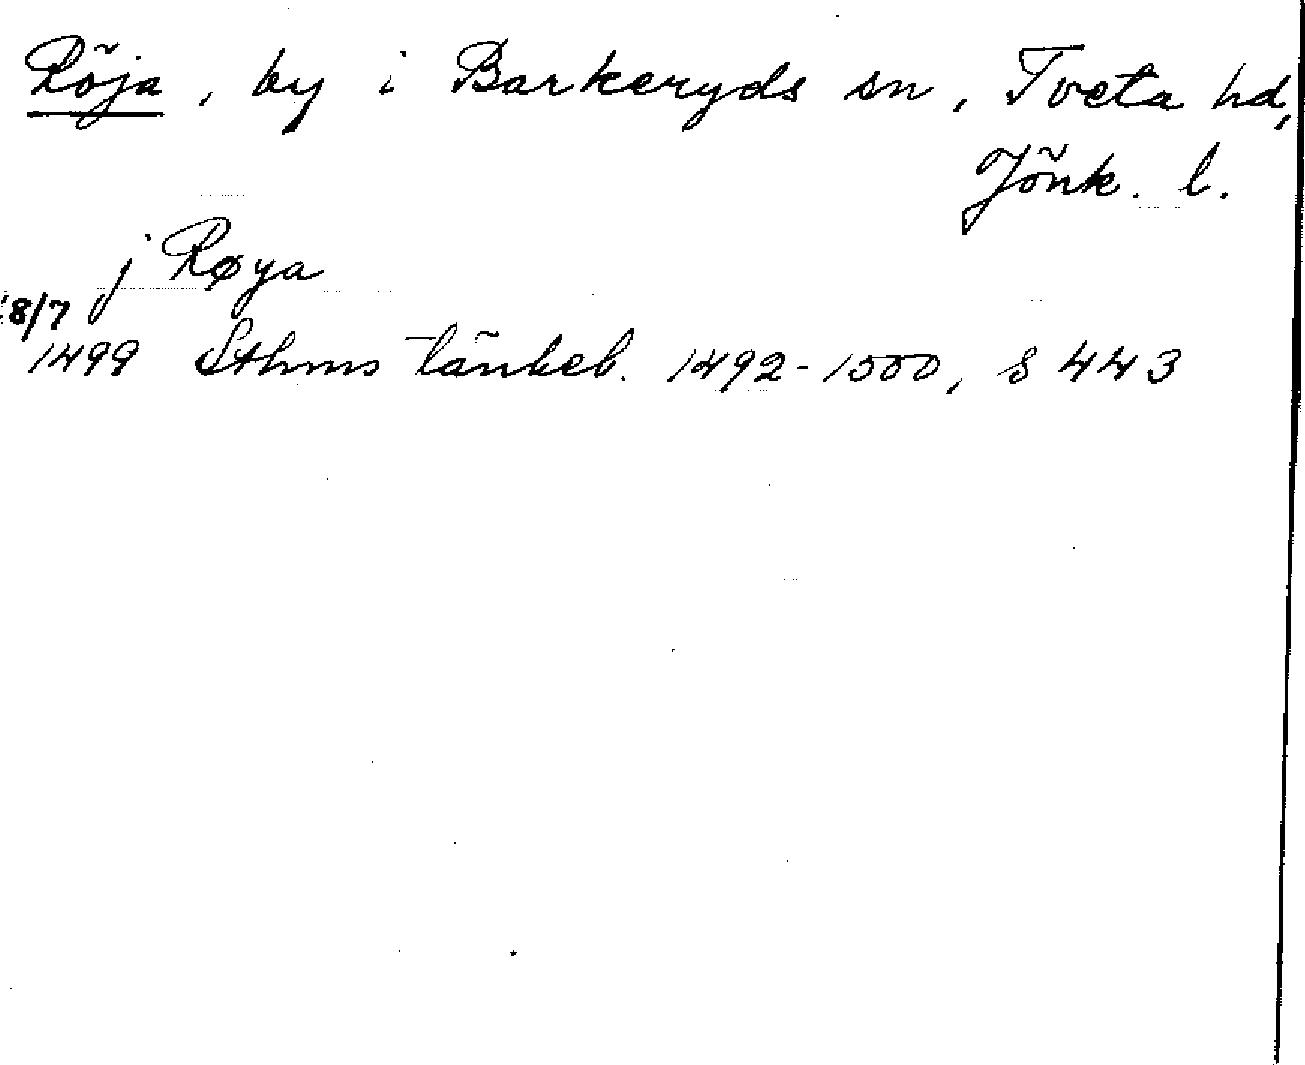 Röja, by i Barkeryds sn, Tveta hd,
Jönk. l.
j Røya
18/7
1499 Sthms tänkeb. 1492-1500, s 443